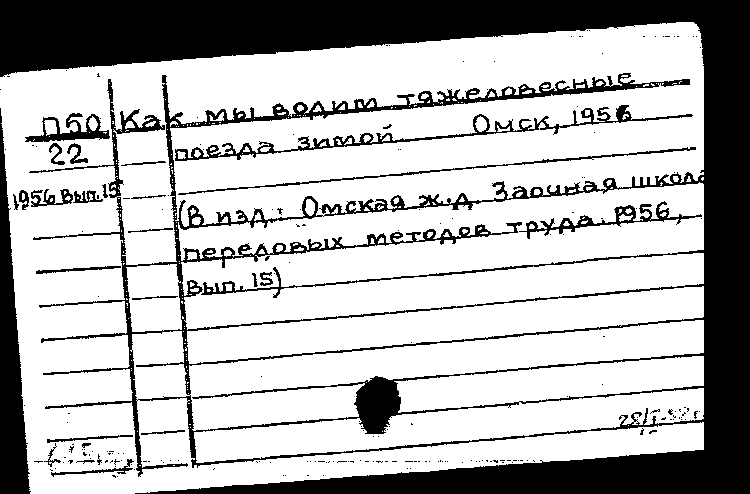 П50 Как мы водим тяжеловесные
22 поезда зимой. Омск, 1956
1956 Вып. 15
(В изд.: Омская ж.д. Заочная школа
передовых методов труда. 1956,
Вып. 15)